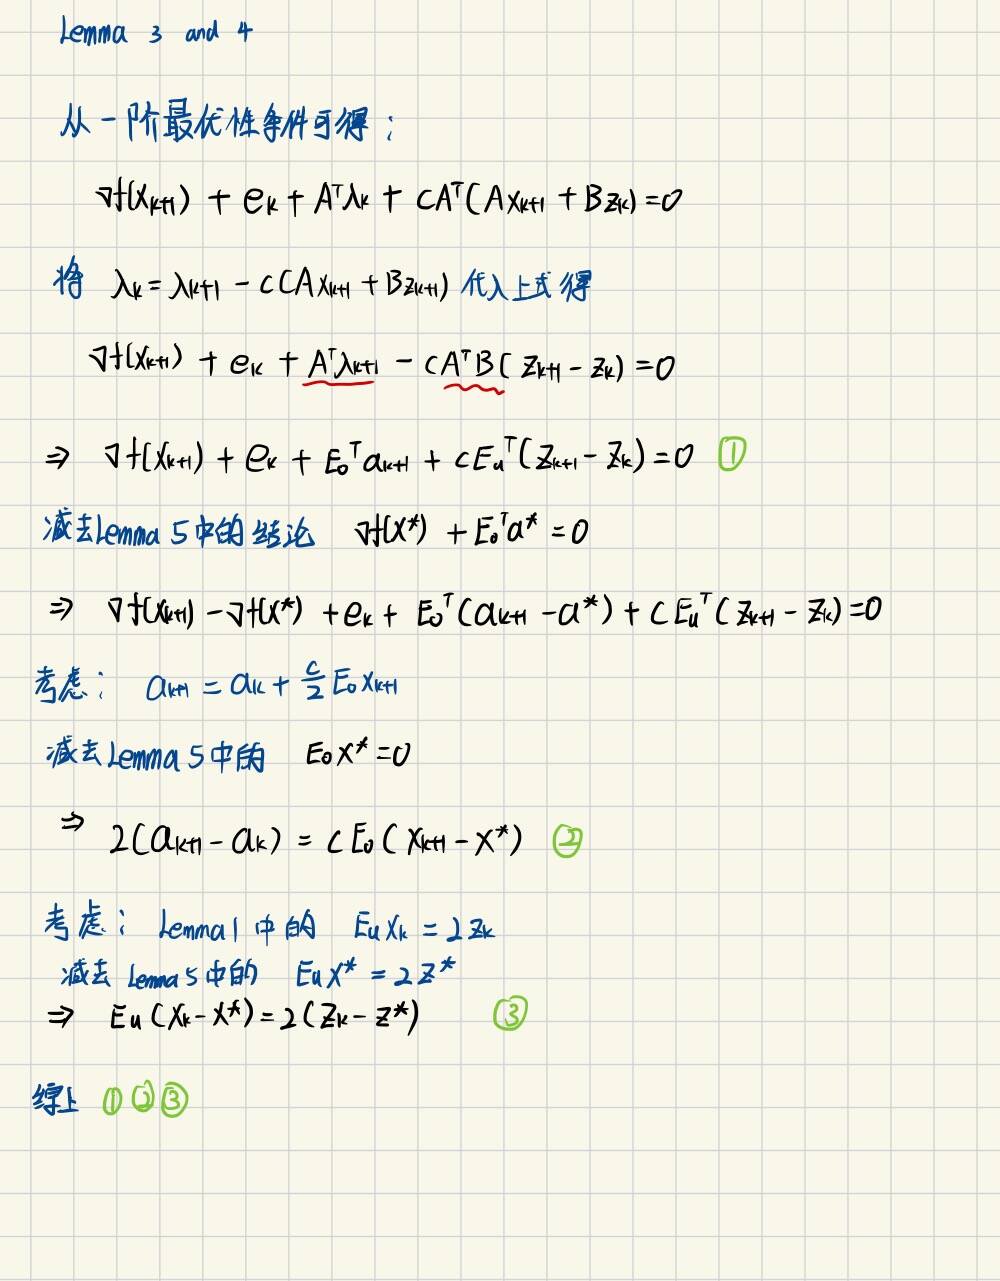 Lemma 3 and 4
从一阶最优性条件可得：
∇f(x_{k+1}) + e_k + A^Tλ_k + cA^T(Ax_{k+1} + Bz_k) = 0
将 λ_k = λ_{k+1} - c(Ax_{k+1} + Bz_{k+1}) 代入上式得
∇f(x_{k+1}) + e_k + A^Tλ_{k+1} - cA^TB(z_{k+1} - z_k) = 0
⇒ ∇f(x_{k+1}) + e_k + E_o^T a_{k+1} + cE_u^T(z_{k+1} - z_k) = 0 ①
减去Lemma 5中的结论 ∇f(x*) + E_o^T a* = 0
⇒ ∇f(x_{k+1}) - ∇f(x*) + e_k + E_o^T(a_{k+1} - a*) + cE_u^T(z_{k+1} - z_k) = 0
考虑： a_{k+1} = a_k + \frac{c}{2} E_o x_{k+1}
减去Lemma 5中的 E_o x* = 0
⇒ 2(a_{k+1} - a_k) = cE_o(x_{k+1} - x*) ②
考虑： Lemma 1 中的 E_u x_k = 2z_k
减去 Lemma 5中的 E_u x* = 2z*
⇒ E_u(x_k - x*) = 2(z_k - z*) ③
综上 ①②③